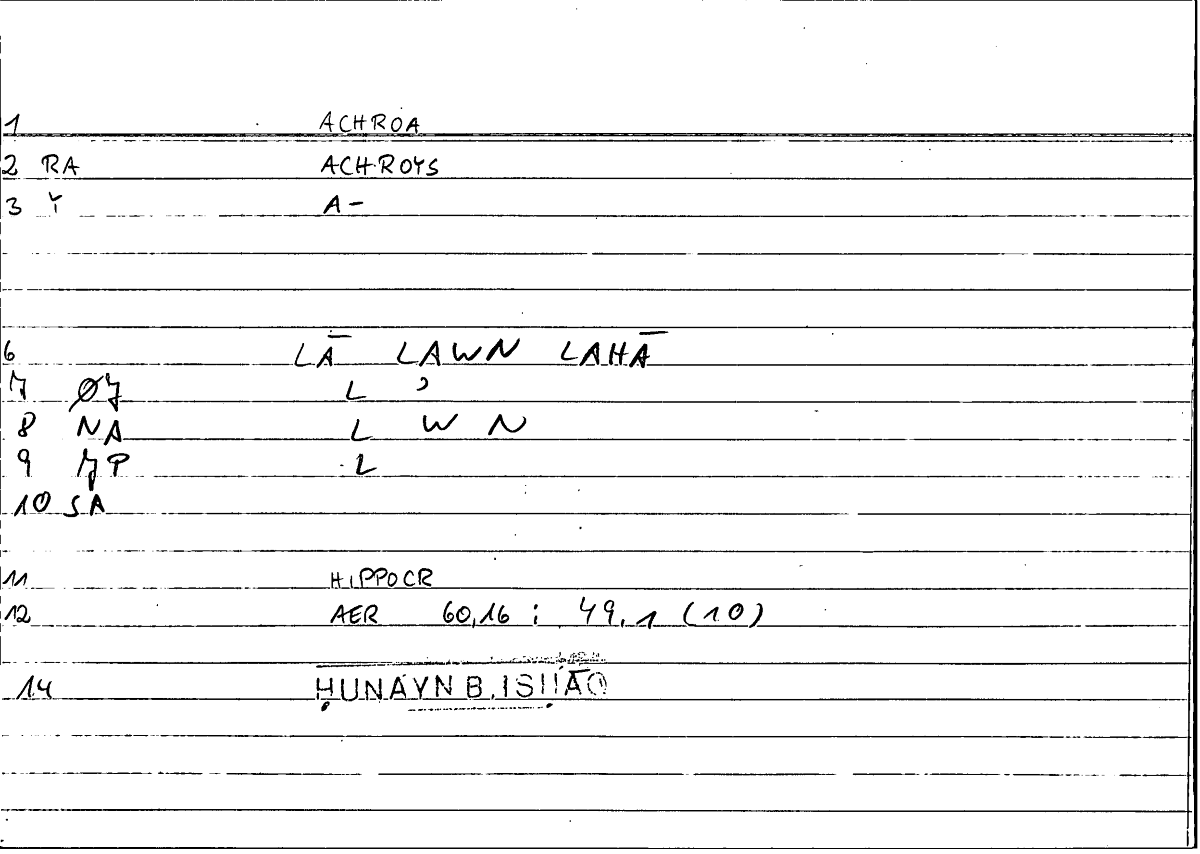 1 ACHROA
2 RA ACHROYS
3 Y A-
6 LĀ LAWN LAHĀ
7 Ø7 L ʾ
8 NA L W N
9 7P L
10 SA
11 HIPPOCR
12 AER 60,16 ; 49,1 (10)
14 ḤUNAYN B. ISḤĀQ